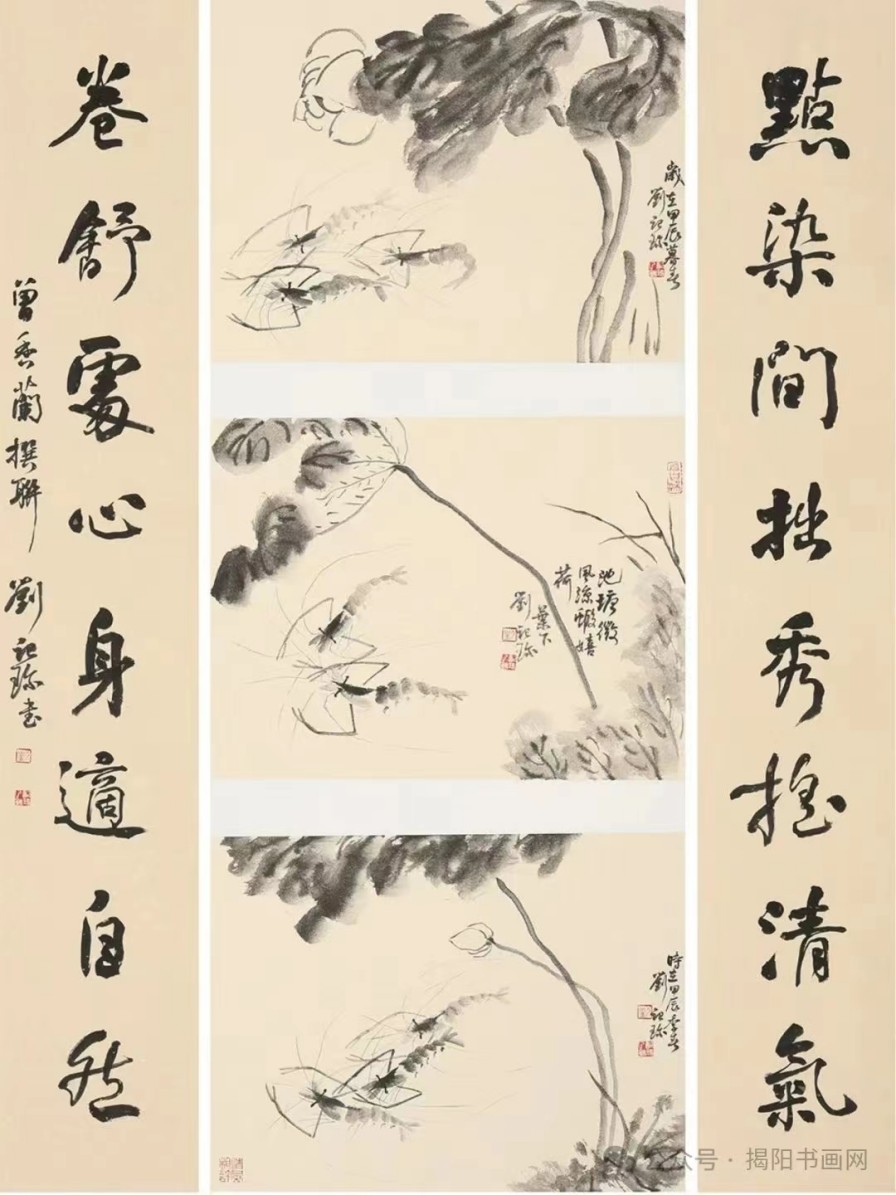 點染間拙秀挹清氣
歲在甲辰暮春
劉記珍
池塘微
風 蝦嬉
荷
葉下
劉記珍
時在甲辰季春
劉記珍
卷舒處心身適自然
曾香蘭撰聯 劉記珍書
公众号 · 揭阳书画网